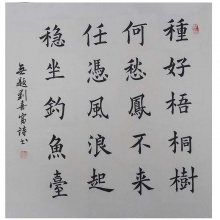 種好梧桐樹
何愁鳳不来
任憑風浪起
稳坐釣魚臺
無題劉春富詩書